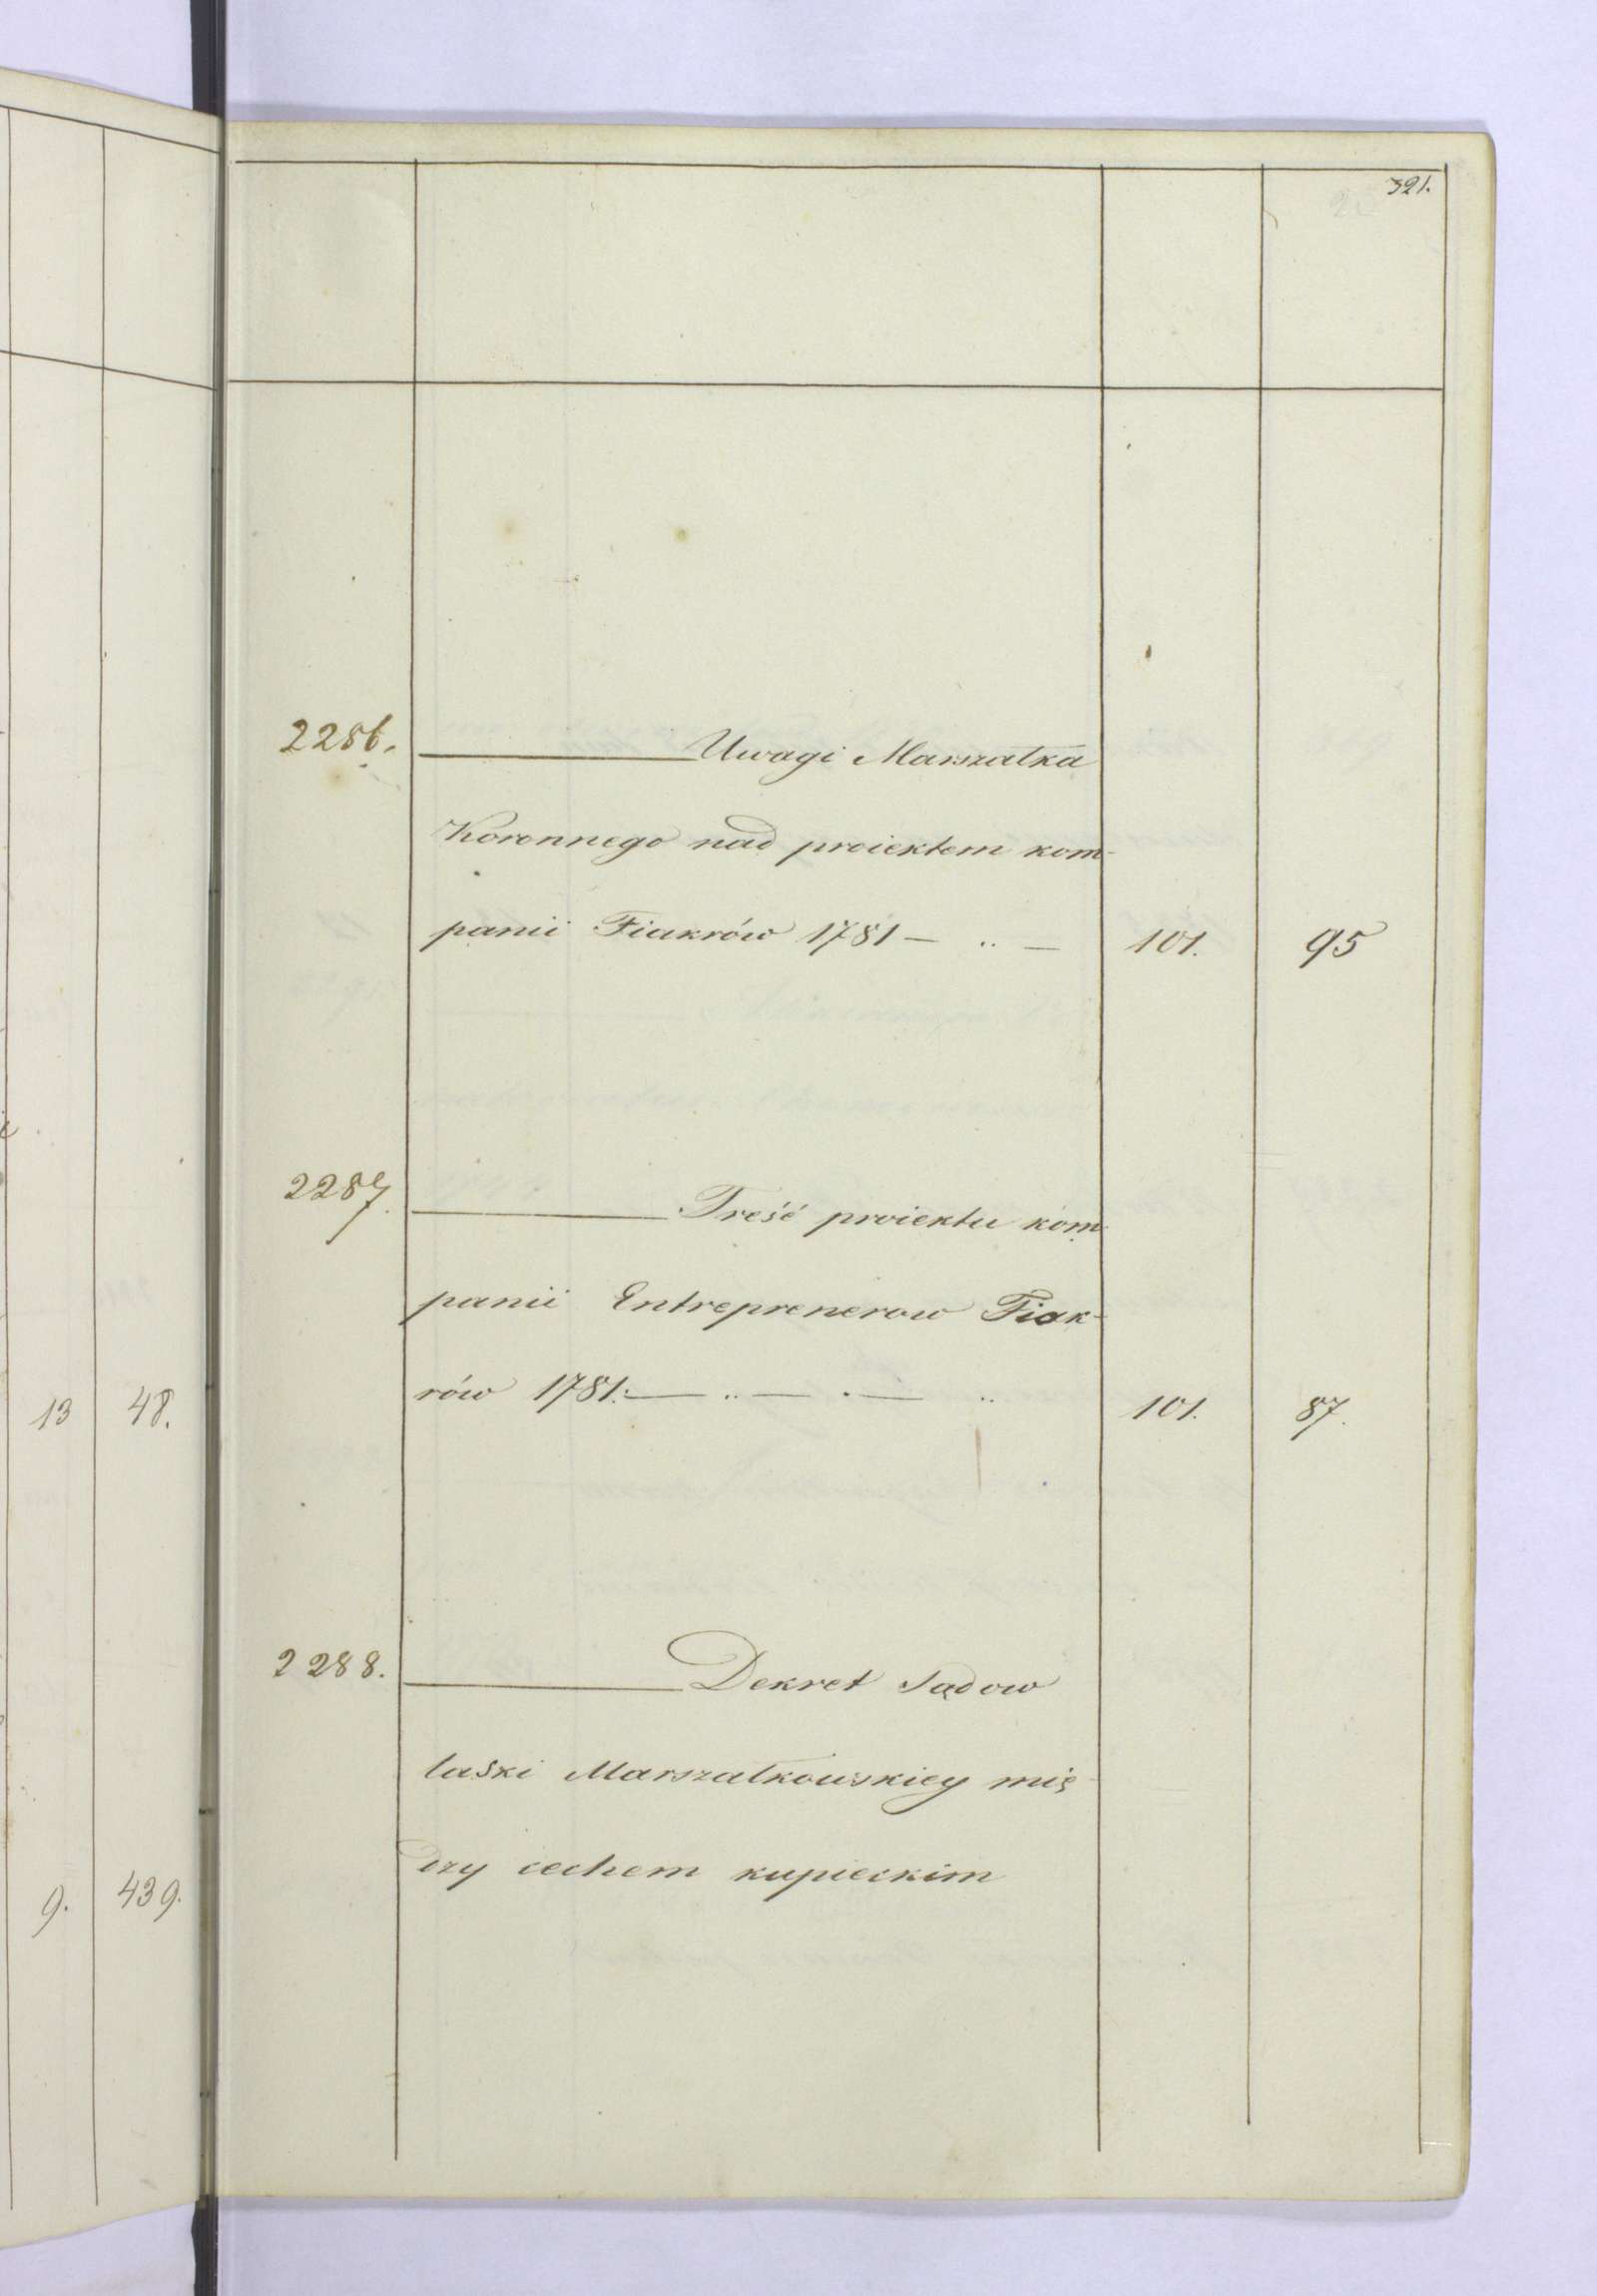 321.
2286. Uwagi Marszałka
Koronnego nad proiektem kom-
panii Fiakrów 1781 — .. — 101. 95
2287. Treść proiektu kom-
panii Entreprenerow Fiak-
rów 1781. — .. — . — .. 101. 87.
2288. Dekret Sądow
laski Marszałkowskiey mię-
dzy cechem kupieckim
13 48.
9. 439.